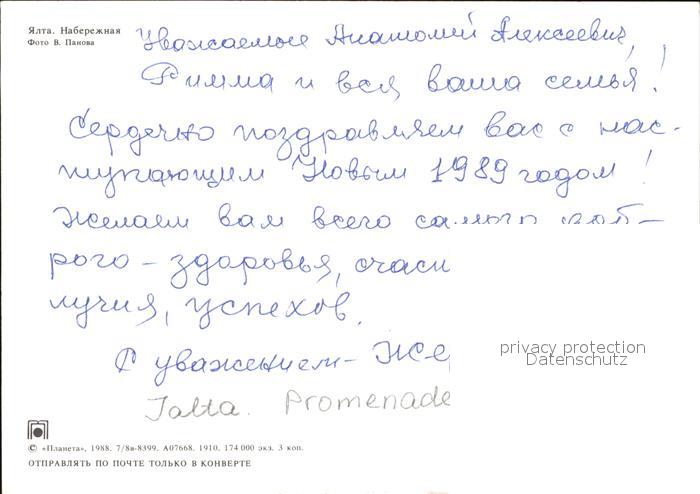 Ялта. Набережная
Фото В. Панова
Уважаемые Анатолий Алексеевич,
Римма и вся ваша семья!
Сердечно поздравляем вас с нас-
тупающим Новым 1989 годом!
Желаем вам всего самого доб-
рого - здоровья, счасть
лучия, успехов.
С уважением -
privacy protection
Datenschutz
Jalta. Promenade
© «Планета», 1988. 7/8в-8399. А07668. 1910. 174 000 экз. 3 коп.
ОТПРАВЛЯТЬ ПО ПОЧТЕ ТОЛЬКО В КОНВЕРТЕ